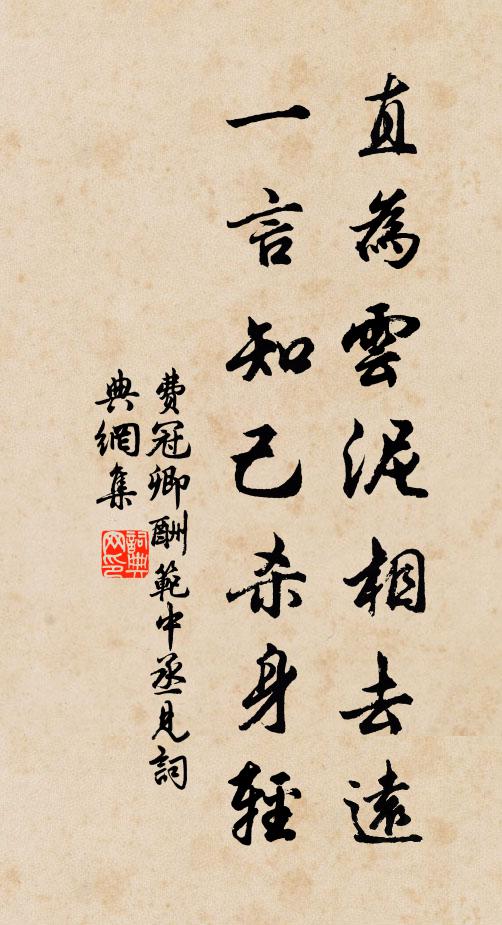 直為雲泥相去遠
一言知己杀身輕
費冠卿酬範中丞見詞
典網集
詞典
网印